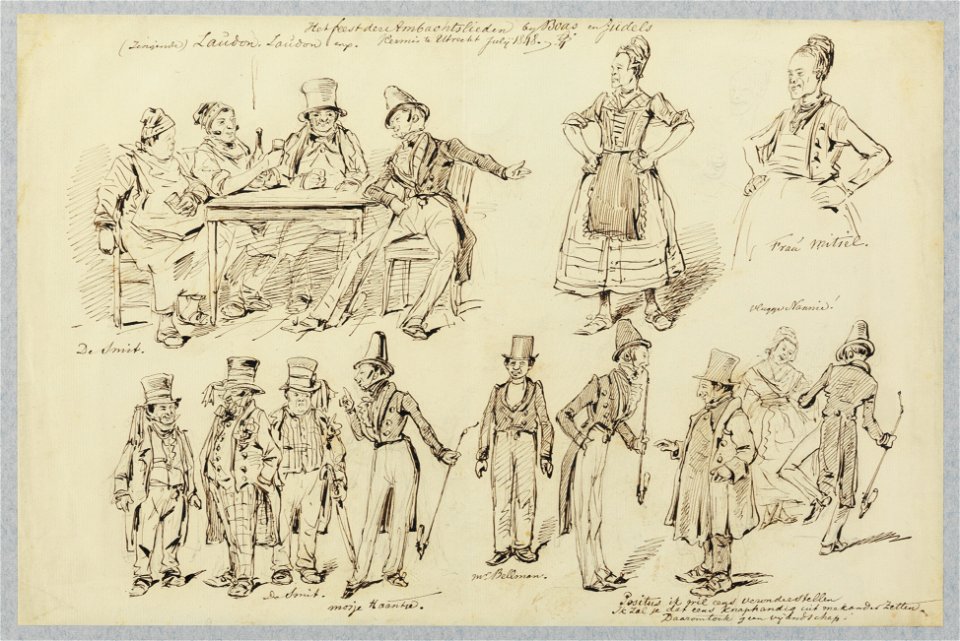 Het feest der Ambachtslieden bij Boas en Judels
(Zingende) Laudon. Laudon enz. Kermis te Utrecht July 1848.
Frau Witsel.
vlugge Nannie!
De Smit.
De Smit.
mooje Haantje.
Mr. Belleman.
Positus ik wil eens veronderstellen
ik zal je dat eens knaphandig uit mekander zetten.
Daarom toch geen vijandschap.